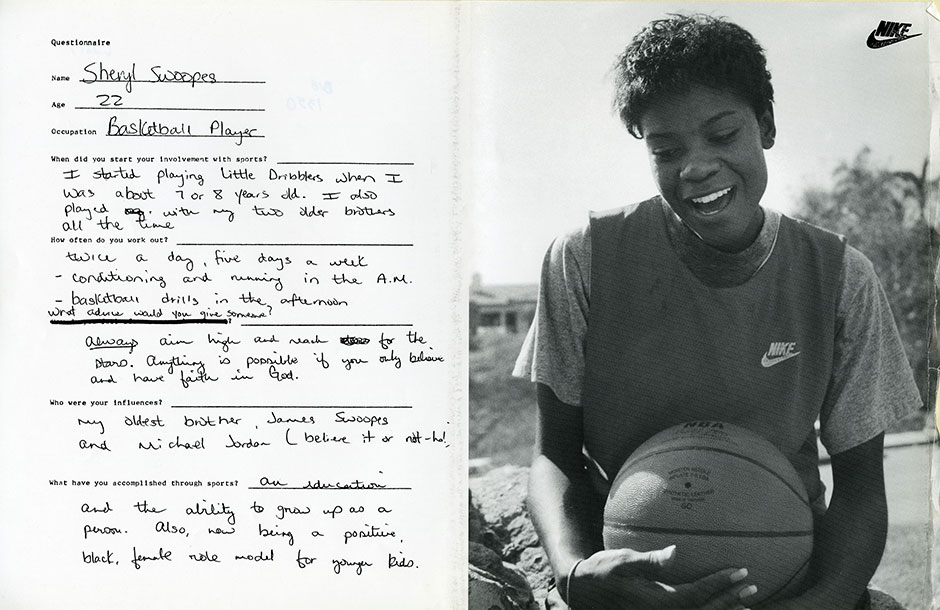 Questionnaire
Name Sheryl Swoopes
Age 22
Occupation Basketball Player
When did you start your involvement with sports?
I started playing Little Dribblers when I
was about 7 or 8 years old. I also
played with my two older brothers
all the time
How often do you work out?
twice a day, five days a week
- conditioning and running in the A.M.
- basketball drills in the afternoon
What advice would you give someone?
Always aim high and reach for the
stars. Anything is possible if you only believe
and have faith in God.
Who were your influences?
my oldest brother, James Swoopes
and Michael Jordan (believe it or not-ha!
What have you accomplished through sports? an education
and the ability to grow up as a
person. Also, now being a positive,
black, female role model for younger kids.
NIKE
NIKE
NBA
SYNTHETIC LEATHER